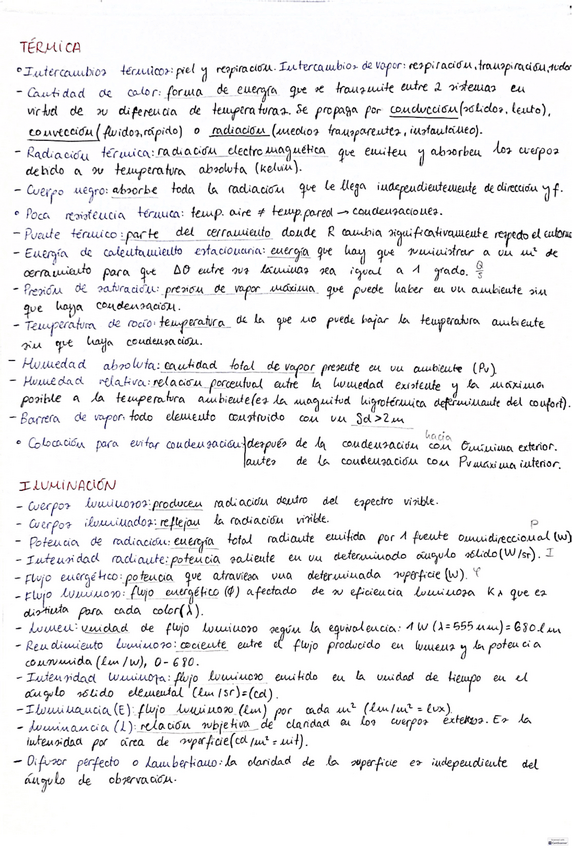 TÉRMICA
• Intercambios térmicos: piel y respiración. Intercambios de vapor: respiración, transpiración, sudor
- Cantidad de calor: forma de energía que se transmite entre 2 sistemas en
virtud de su diferencia de temperaturas. Se propaga por conducción (sólidos, lento),
convección (fluidos, rápido) o radiación (medios transparentes, instantáneo).
- Radiación térmica: radiación electromagnética que emiten y absorben los cuerpos
debido a su temperatura absoluta (Kelvin).
- Cuerpo negro: absorbe toda la radiación que le llega independientemente de dirección y f.
• Poca resistencia térmica: temp. aire ≠ temp. pared → condensaciones.
- Puente térmico: parte del cerramiento donde R cambia significativamente respecto el entorno
- Energía de calentamiento estacionaria: energía que hay que suministrar a un m² de
cerramiento para que ΔΘ entre sus láminas sea igual a 1 grado.
- Presión de saturación: presión de vapor máxima que puede haber en un ambiente sin
que haya condensación.
- Temperatura de rocío: temperatura de la que no puede bajar la temperatura ambiente
sin que haya condensación.
- Humedad absoluta: cantidad total de vapor presente en un ambiente (Pv)
- Humedad relativa: relación porcentual entre la humedad existente y la máxima
posible a la temperatura ambiente (es la magnitud higrotérmica determinante del confort).
- Barrera de vapor: todo elemento construido con un Sd>2m
• Colocación para evitar condensación después de la condensación hacia con Θ mínima exterior.
antes de la condensación con Pv máxima interior.
ILUMINACIÓN
- Cuerpos luminosos: producen radiación dentro del espectro visible.
- Cuerpos iluminados: reflejan la radiación visible.
- Potencia de radiación: energía total radiante emitida por 1 fuente omnidireccional (W) P
- Intensidad radiante: potencia saliente en un determinado ángulo sólido (W/sr). I
- Flujo energético: potencia que atraviesa una determinada superficie (W). φ
- Flujo luminoso: flujo energético (Φ) afectado de su eficiencia luminosa Kλ que es
distinta para cada color (λ).
- Lumen: unidad de flujo luminoso según la equivalencia: 1 W (λ=555 nm) = 680 lm
- Rendimiento luminoso: cociente entre el flujo producido en lumens y la potencia
consumida (lm/W), 0-680.
- Intensidad luminosa: flujo luminoso emitido en la unidad de tiempo en el
ángulo sólido elemental (lm/sr)=(cd).
- Iluminancia (E): flujo luminoso (lm) por cada m² (lm/m² = lux).
- Luminancia (L): relación subjetiva de claridad en los cuerpos extensos. Es la
intensidad por área de superficie (cd/m² = nit).
- Difusor perfecto o Lambertiano: la claridad de la superficie es independiente del
ángulo de observación.